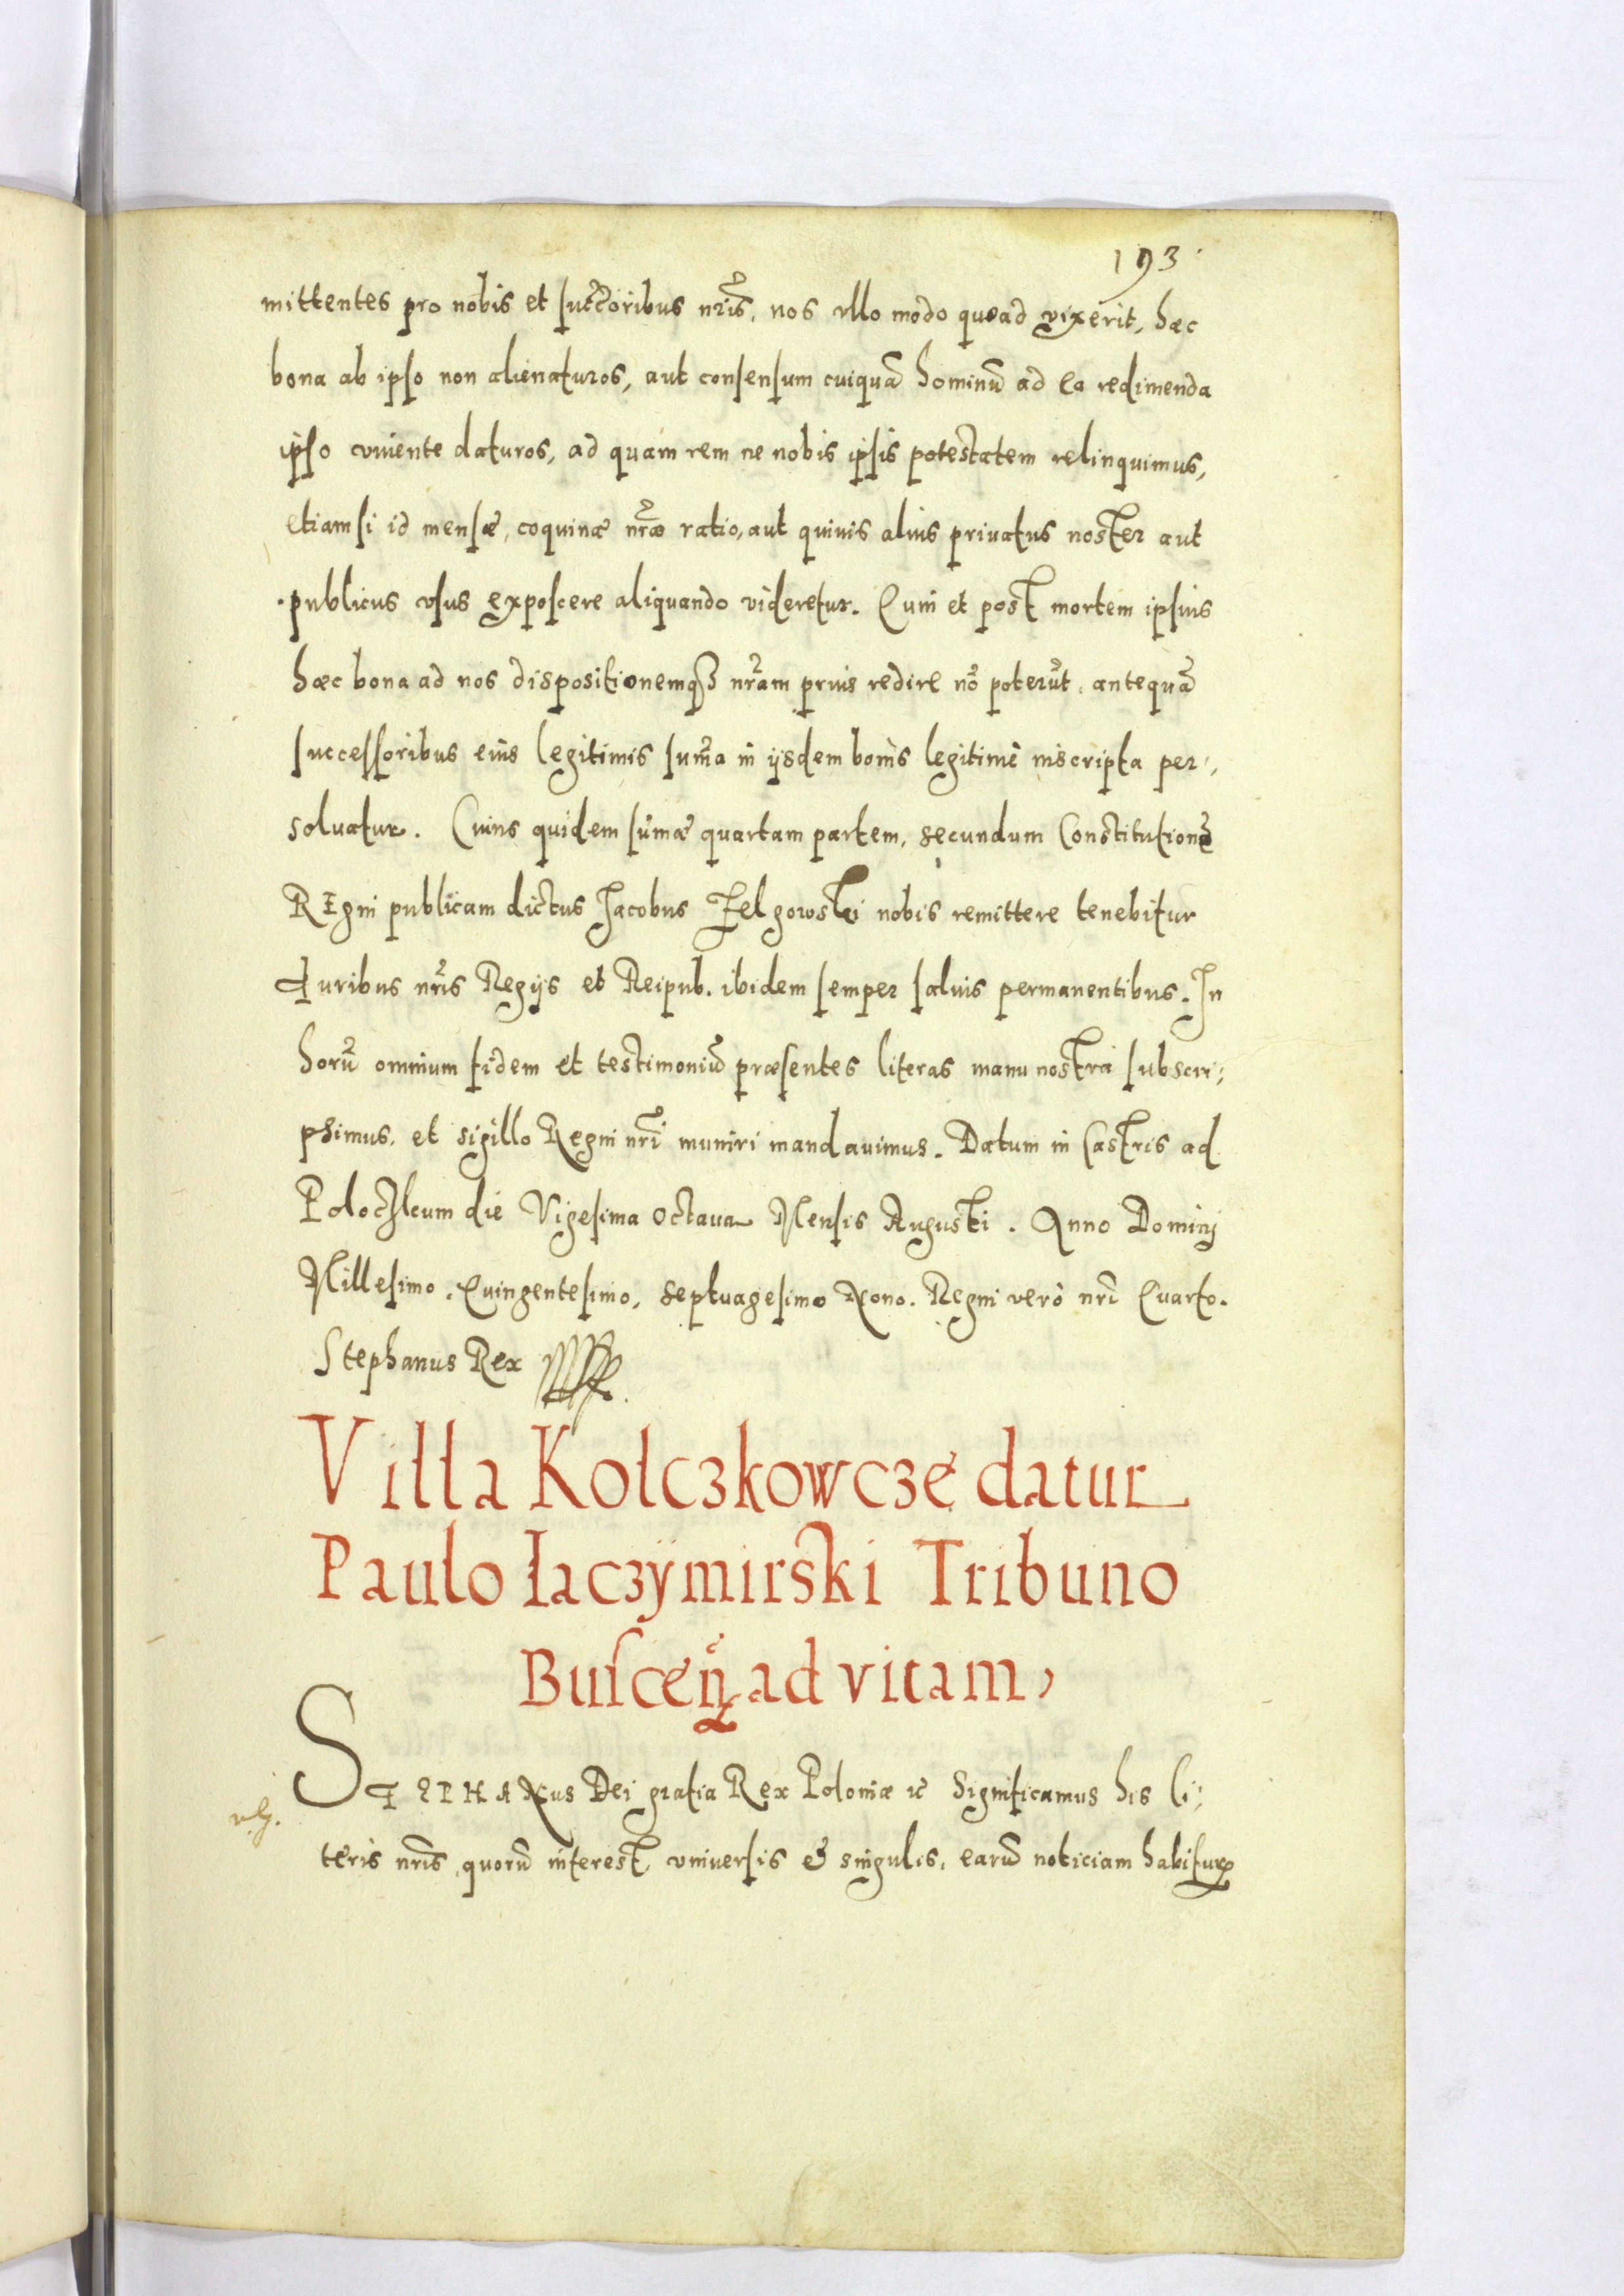 193
mittentes pro nobis et succ̃oribus nr̃is, nos vllo modo quoad vixerit, hæc
bona ab ipso non alienaturos, aut consensum cuiquã hominũ ad ea redimenda
ipso viuente daturos, ad quam rem ne nobis ipsis potestatem relinquimus,
etiamsi id mensæ, coquinæ nr̃æ ratio, aut quiuis alius priuatus noster aut
publicus vsus exposcere aliquando videretur. Quin et post mortem ipsius
hæc bona ad nos dispositionemqꝫ nr̃am prius redire nõ poterũt, antequã
successoribus eius legitimis sum̃a in ijsdem bonis legitime inscripta per,,
soluatur. Cuius quidem sum̃æ quartam partem, secundum Constitutionẽ
Regni publicam dictus Jacobus Zelgowski nobis remittere tenebitur
Iuribus nr̃is Regijs et Reipub. ibidem semper saluis permanentibus. In
horũ omnium fidem et testimoniũ præsentes literas manu nostra subscri,,
psimus, et sigillo Regni nr̃i muniri mandauimus. Datum in Castris ad
Poloczkum die Vigesima octaua Mensis Augusti. Anno Dominj
Millesimo, Quingentesimo, septuagesimo Nono. Regni verò nr̃i Quarto.
Stephanus Rex
Villa Kolczkowcze datur
Paulo Iaczÿmirski Tribuno
Buscen̄ ad vitam,
STEPHANus Dei gratia Rex Poloniæ ꝛc̃ Significamus his li,,
teris nr̃is quorũ interest vniuersis & singulis, earũ noticiam habiturꝝ